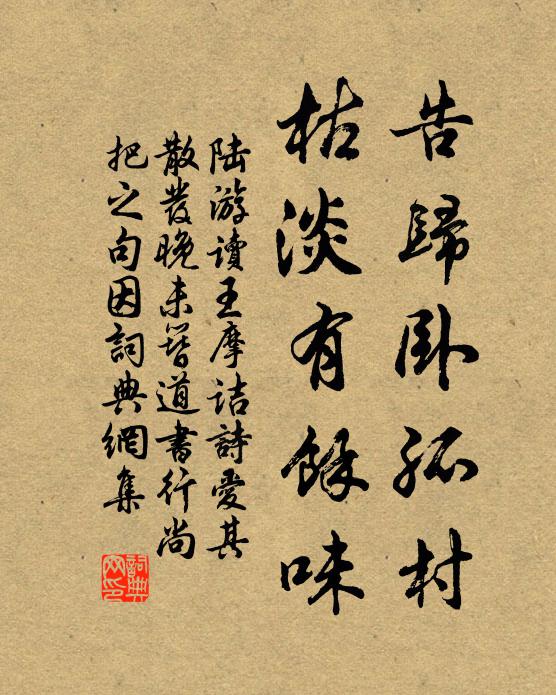 告歸卧孤村
枯淡有餘味
陆游讀王摩诘詩愛其
散發晚未簪道書行尚
把之句因詞典網集
詞典网印